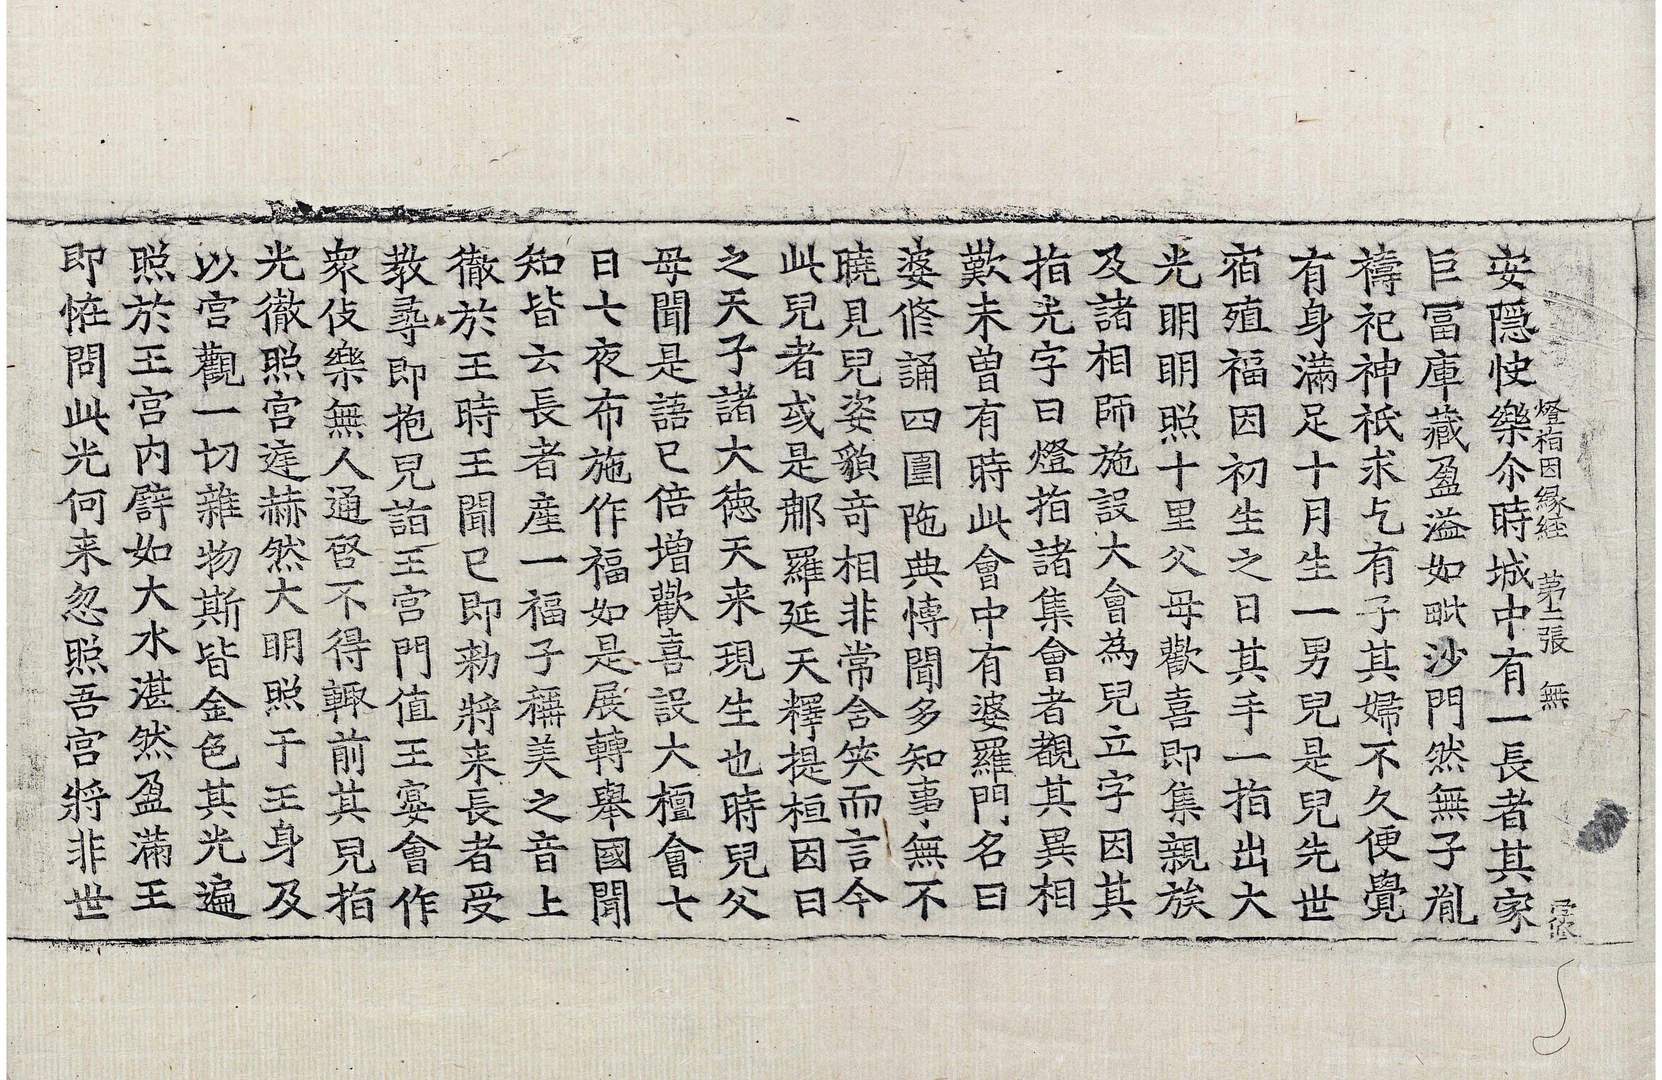 燈指因緣經 第二張 無
安隱快樂尒時城中有一長者其家
巨冨庫藏盈溢如毗沙門然無子胤
禱祀神祇求乞有子其婦不久便覺
有身滿足十月生一男兒是兒先世
宿殖福因初生之日其手一指出大
光明明照十里父母歡喜即集親族
及諸相師施設大會為兒立字因其
指光字曰燈指諸集會者觀其異相
歎未曾有時此會中有婆羅門名曰
婆修誦四圍陁典博聞多知事無不
曉見兒姿貌竒相非常含笑而言今
此兒者或是那羅延天釋提桓因日
之天子諸大德天来現生也時兒父
母聞是語已倍増歡喜設大檀會七
日七夜布施作福如是展轉舉國聞
知皆云長者產一福子稱美之音上
徹於王時王聞已即勑將来長者受
教尋即抱兒詣王宮門值王宴會作
衆伎樂無人通啓不得輙前其兒指
光徹照宮遑赫然大明照于王身及
以宮觀一切雜物斯皆金色其光遍
照於王宮内譬如大水湛然盈滿王
即恠問此光何来忽照吾宮將非世